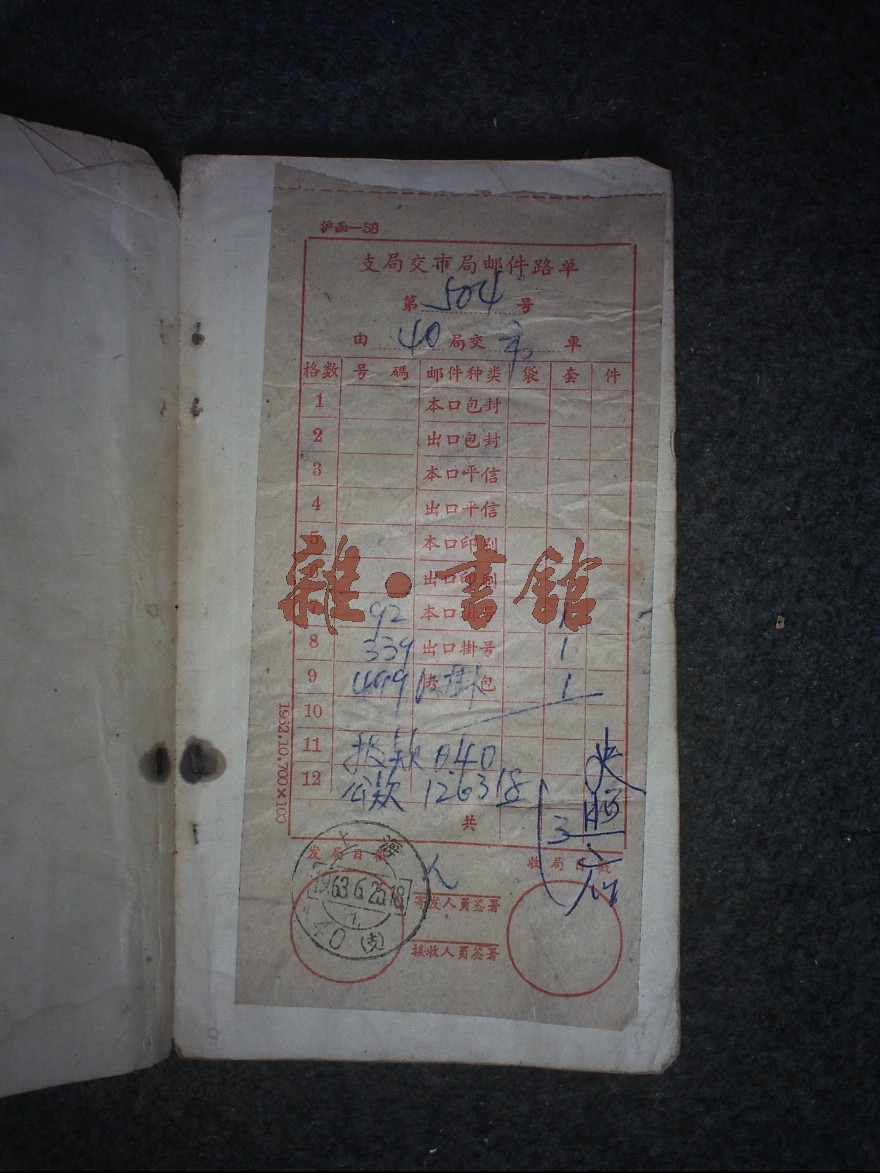 沪函—58
支局交市局邮件路单
第 504 号
由 40 局交 車
格数 号碼 邮件种类 袋 套 件
1 本口包封
2 出口包封
3 本口平信
4 出口平信
5 本口印刷
6 出口印刷
92 本口 1
8 339 出口掛号 1
9 499 掛 包 1
10
11 投款 A40
12 公款 126318
共 3
雜·書館
1962.10.700×100
发局日戳 收局日戳
上海
1963.6.25.18
40(支)
寄发人員签署
接收人員签署